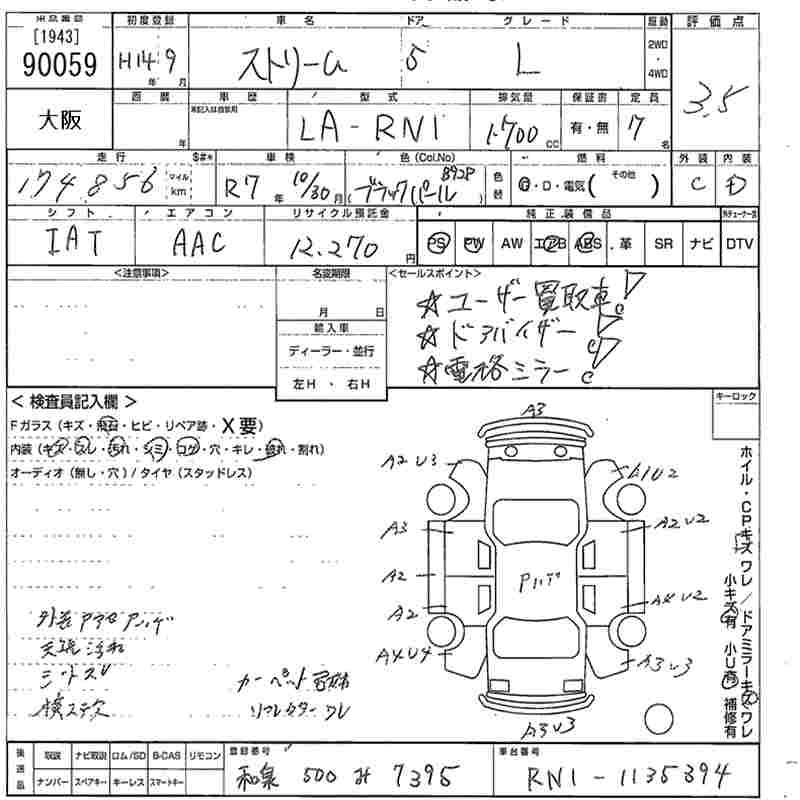 [1943]
90059
大阪
初度登録 車名 ドア グレード 駆動 評価点
H14年9月 ストリーム 5 L 2WD・4WD 3.5
年 車歴 型式 排気量 保証書 定員
未記入は自家用
LA-RN1 1700cc 有・無 7名
走行 $#* 車検 色(Col.No) 色替 燃料 外装 内装
174856 マイル km R7年10/30月 (ブラックパール B92P) G・D・電気(その他) C D
シフト エアコン リサイクル預託金 純正装備品
IAT AAC 12,270円 PS PW AW エアB ABS 革 SR ナビ DTV
<注意事項> 名変期限 <セールスポイント>
月 日
輸入車
ディーラー・並行
左H・右H
☆ユーザー買取車
☆ドアバイザー
☆電格ミラー
<検査員記入欄> キーロック
Fガラス(キズ・飛石・ヒビ・リペア跡・X要)
内装(キズ・スレ・汚れ・シミ・コゲ・穴・キレ・破れ・割れ)
オーディオ(無し・穴)/タイヤ(スタッドレス)
A3
A2 U3
A3 A2 U2
A2 A4 U2
A2
A4U4 A3 U3
A3 U3
天張汚れ
シートスレ
リフレクターワレ
ホイル・CPキズワレ/ドアミラーキズワレ
小キズ有 小U有 補修有
後送品 取説 ナビ取説 ロム/SD B-CAS リモコン
ナンバー スペアキー キーレス スマートキー
登録番号 和泉 500 サ 7395
車台番号 RN1-1135394